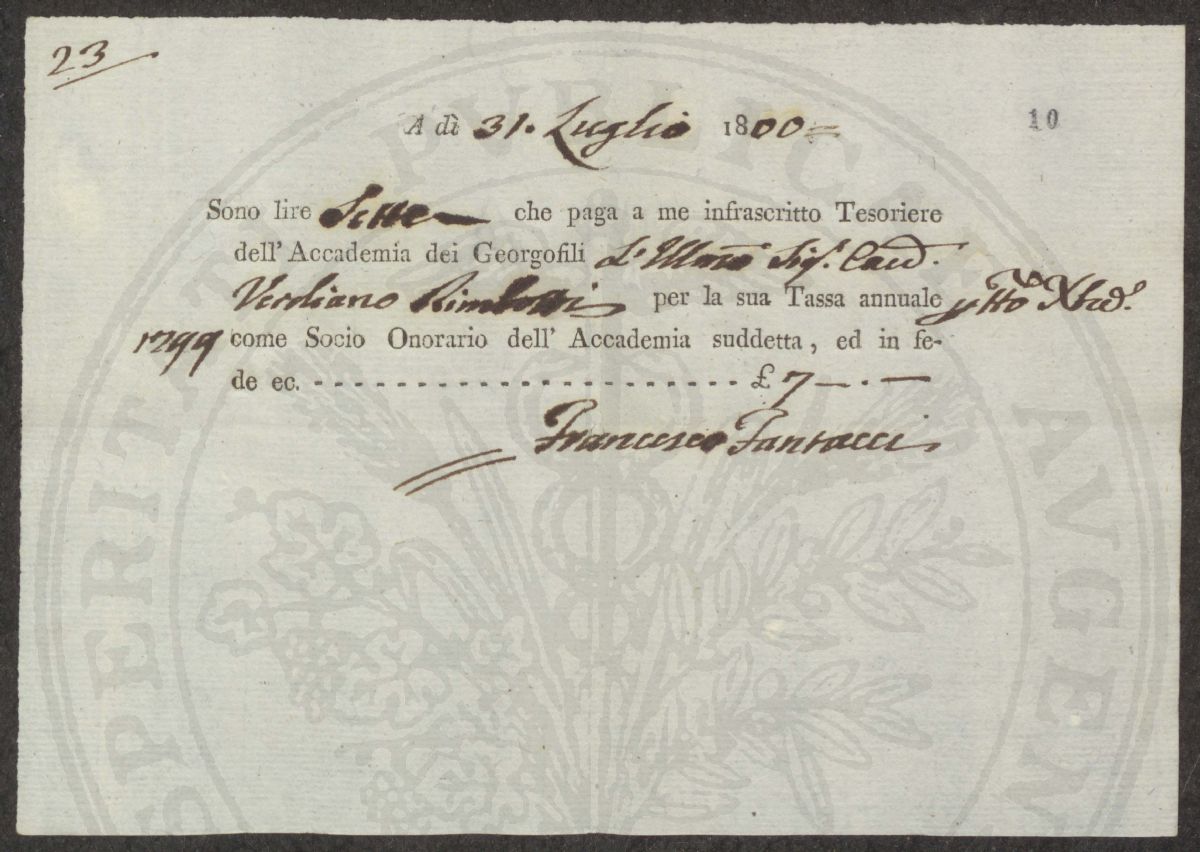 23
A dì 31. Luglio 1800 =
10
Sono lire Sette che paga a me infrascritto Tesoriere
dell' Accademia dei Georgofili L'Illmo Sigr. Cav.
Verdiano Rimbotti per la sua Tassa annuale p tto Xbre
1799 come Socio Onorario dell' Accademia suddetta, ed in fe-
de ec. - - - - - - - - - - - - - - - - - - - - - - - - - - - - £ 7 —.—
Francesco Fantacci
PROSPERITATI PUBLICAE AUGENDAE